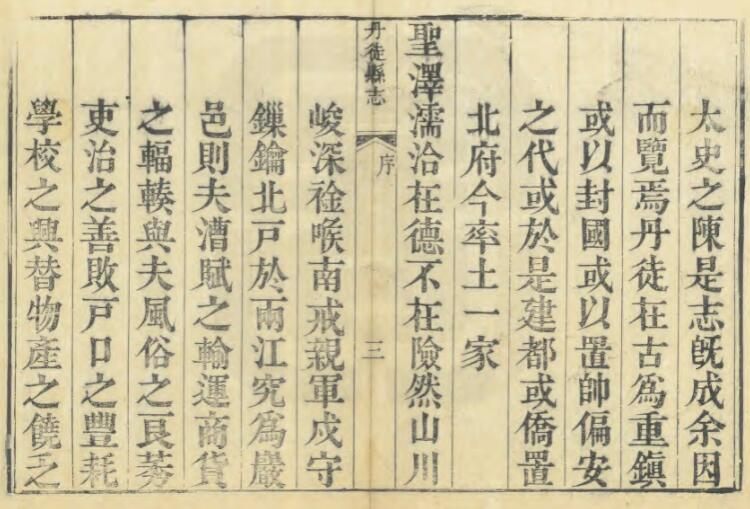 太史之陳是志旣成余因
而覽焉丹徒在古爲重鎭
或以封國或以置帥偏安
之代或於是建都或僑置
北府今率土一家
聖澤濡洽在德不在險然山川
丹徒縣志
序
三
峻深襟喉南戒親軍戍守
鏁鑰北戸於兩江究爲嚴
邑則夫漕賦之輸運商貨
之輻輳與夫風俗之良莠
吏治之善敗戸口之豐耗
學校之興替物產之饒乏